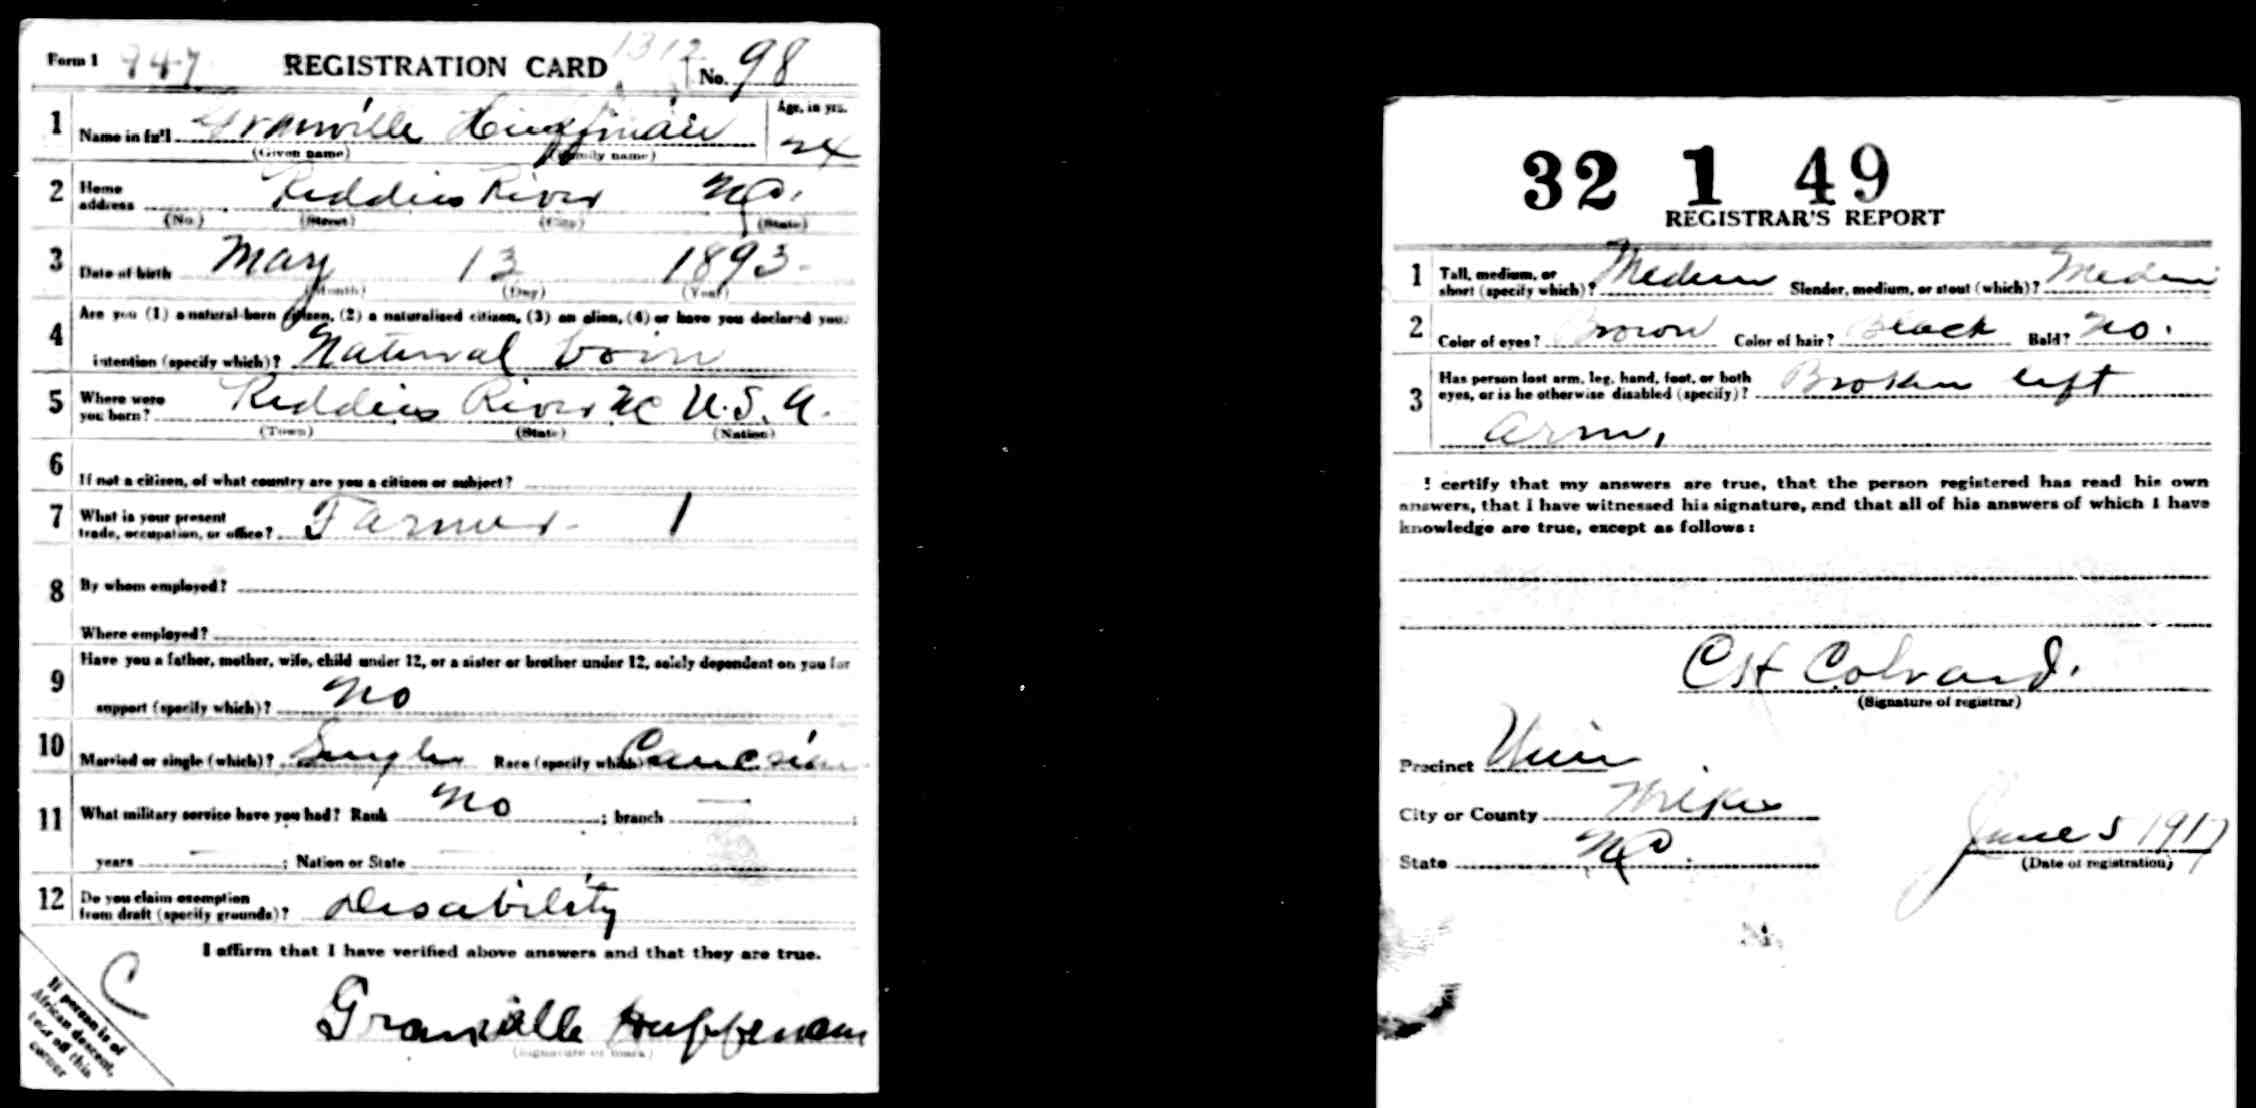 Form 1 947 REGISTRATION CARD 1312 No. 98
1 Name in full Granville Huffman Age, in yrs. 24
(Given name) (Family name)
2 Home address Reddies River NC.
(No.) (Street) (City) (State)
3 Date of birth May 13 1893
(Month) (Day) (Year)
4 Are you (1) a natural-born citizen, (2) a naturalized citizen, (3) an alien, (4) or have you declared your
intention (specify which)? Natural born
5 Where were you born? Reddies River NC U.S.A.
(Town) (State) (Nation)
6 If not a citizen, of what country are you a citizen or subject?
7 What is your present trade, occupation, or office? Farmer 1
8 By whom employed?
Where employed?
9 Have you a father, mother, wife, child under 12, or a sister or brother under 12, solely dependent on you for
support (specify which)? No
10 Married or single (which)? Single Race (specify which)? Caucasian
11 What military service have you had? Rank No ; branch — ;
years — ; Nation or State —
12 Do you claim exemption from draft (specify grounds)? Disability
I affirm that I have verified above answers and that they are true.
C
If person is of
African descent,
tear off this
corner
Granville Huffman
(Signature or mark)
32 1 49
REGISTRAR'S REPORT
1 Tall, medium, or short (specify which)? Medium Slender, medium, or stout (which)? Medium
2 Color of eyes? Brown Color of hair? Black Bald? No.
3 Has person lost arm, leg, hand, foot, or both eyes, or is he otherwise disabled (specify)? Broken left
arm.
I certify that my answers are true, that the person registered has read his own
answers, that I have witnessed his signature, and that all of his answers of which I have
knowledge are true, except as follows:
C H Colvard.
(Signature of registrar)
Precinct Union
City or County Wilkes
State NC
June 5 1917
(Date of registration)